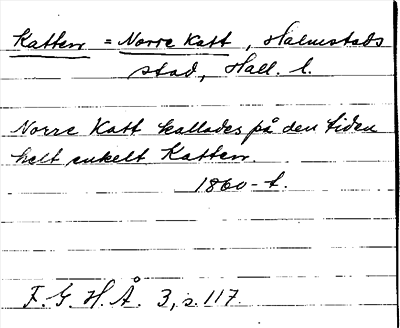 Katten = Norre Katt, Halmstads
stad, Hall. l.
Norre Katt kallades på den tiden
helt enkelt Katten.
1860-t.
F. G. H. Å. 3, s. 117.